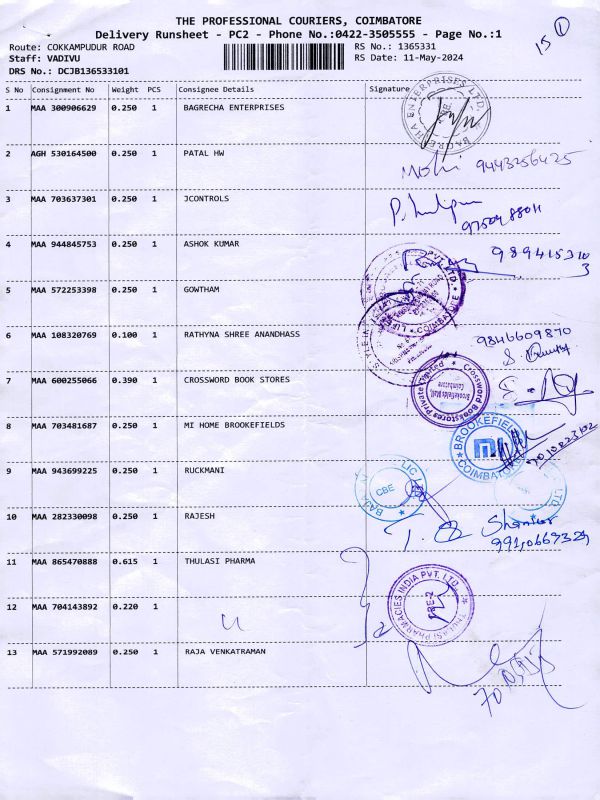 THE PROFESSIONAL COURIERS, COIMBATORE
Delivery Runsheet - PC2 - Phone No.:0422-3505555 - Page No.:1
15 1
Route: COKKAMPUDUR ROAD RS No.: 1365331
Staff: VADIVU RS Date: 11-May-2024
DRS No.: DCJB136533101
S No Consignment No Weight PCS Consignee Details Signature
1 MAA 300906629 0.250 1 BAGRECHA ENTERPRISES
2 AGH 530164500 0.250 1 PATAL HW
9443256425
3 MAA 703637301 0.250 1 JCONTROLS
4 MAA 944845753 0.250 1 ASHOK KUMAR
5 MAA 572253398 0.250 1 GOWTHAM
6 MAA 108320769 0.100 1 RATHYNA SHREE ANANDHASS
9846609870
7 MAA 600255066 0.390 1 CROSSWORD BOOK STORES
Crossword Bookstores Private Limited
Brookefields Mall
Coimbatore
8 MAA 703481687 0.250 1 MI HOME BROOKEFIELDS
BROOKEFIELDS
MI
COIMBATORE
7010823102
9 MAA 943699225 0.250 1 RUCKMANI
CBE
10 MAA 282330098 0.250 1 RAJESH
11 MAA 865470888 0.615 1 THULASI PHARMA
THULASI PHARMACIES INDIA PVT. LTD.
CBE-2
12 MAA 704143892 0.220 1
13 MAA 571992089 0.250 1 RAJA VENKATRAMAN